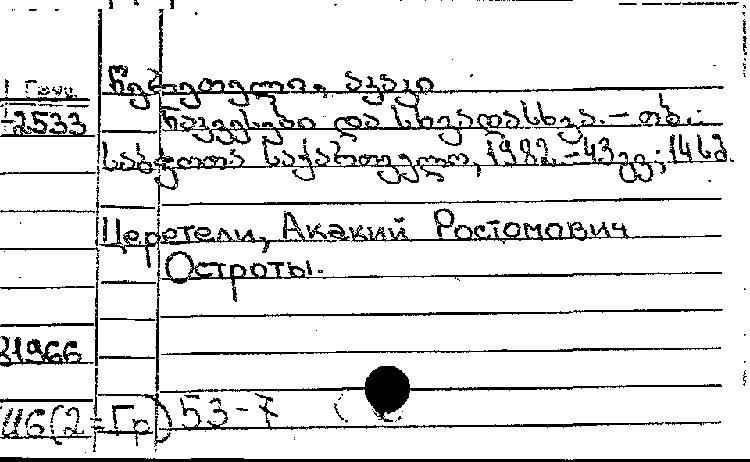 1 Груз.
წერეთელი, აკაკი
2533
ნაკვესები და სხვადასხვა. – თბ.:
საბჭოთა საქართველო, 1982. – 43 გვ; 14 სმ.
Церетели, Акакий Ростомович
Остроты.
31966
Ш6(2=Гр) 53-7